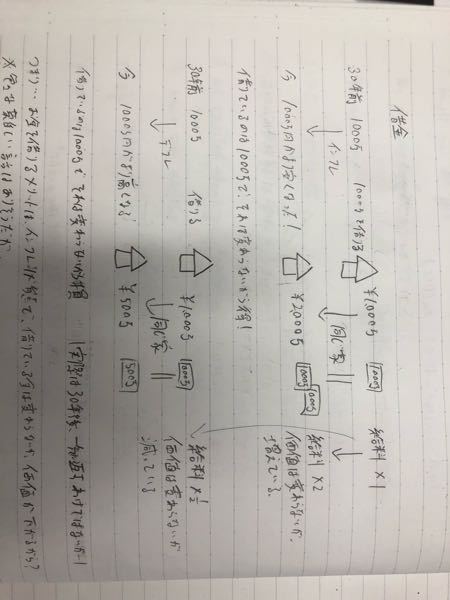 借金
30年前 1000万 1000万を借りる ⇨ ¥1,000万 1000万 給料×1
↓インフレ ↓同じ家 ||
今 1000万円が安くなった! ⇨ ¥2,000万 1000万 1000万 給料×2
価値は変わらないが、増えている。
借りているのは1000万で、それは変わらないから得!
30年前 1000万 借りる ⇨ ¥1,000万 1000万 給料×1/2
↓デフレ ↓同じ家 || 価値は変わらないが減っている
今 1000万円が高くなる ⇨ ¥500万 500万
借りているのは1000万で それは変わらないから損
つまり…お金を借りるメリットは、インフレは必至で、借りている分は変わらないが、価値が下がるから?